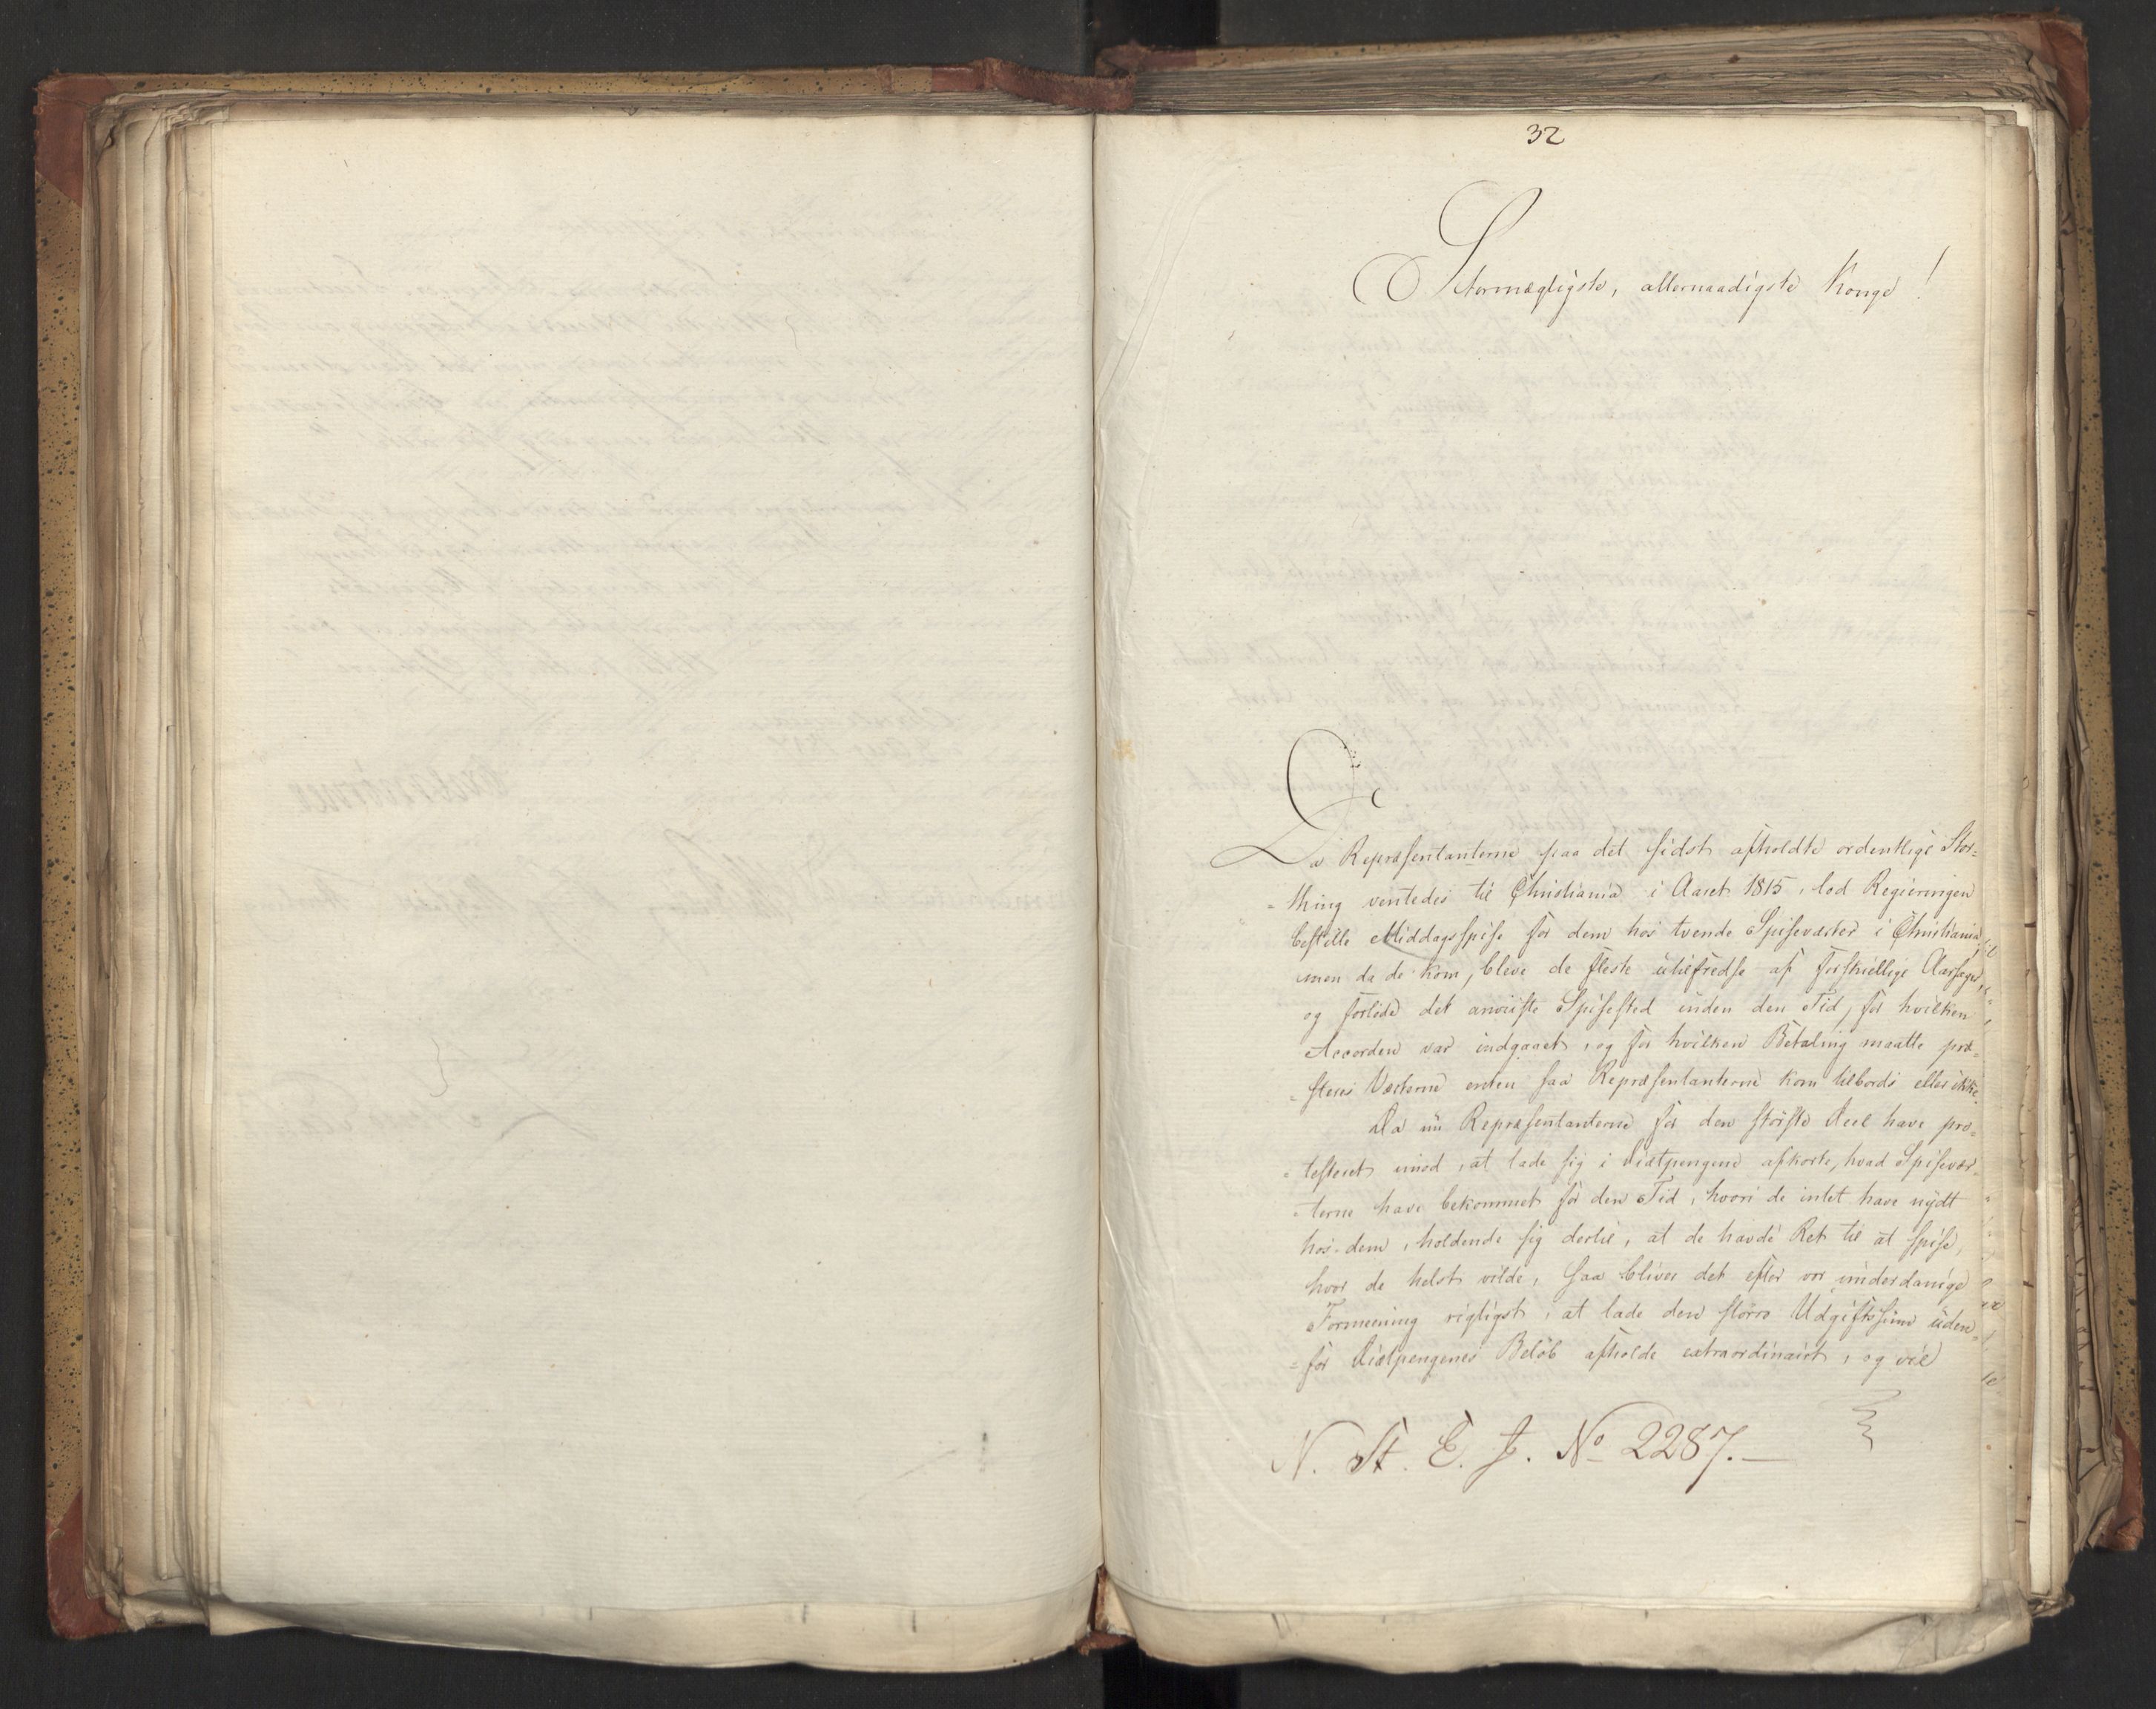 32
Stormægtigste, allernaadigste Konge!
Da Repræsentanterne paa det sidst afholdte ordentlige Stor=
=thing ventedes til Christiania i Aaret 1815, lod Regieringen
bestille Middagsspise for dem hos tvende Spiseværter i Christiania,
men da de kom, bleve de fleste utilfredse af forskiellige Aarsager,
og forlode det anviiste Spisested inden den Tid, for hvilken
Accorden var indgaaet, og for hvilken Betaling maatte præ=
=steres Værterne enten saa Repræsentanterne kom tilbords eller ikke.
Da nu Repræsentanterne for den störste Deel have pro=
=testeret imod, at lade sig i Diætpengene afkorte, hvad Spisevær=
=terne have bekommet for den Tid, hvori de intet have nydt
hos dem, holdende sig dertil, at de havde Ret til at spise,
hvor de helst vilde, saa bliver det efter vor underdanige
Formeening rigtigst, at lade den större Udgiftssum uden=
=for Diætpengenes Belöb afholde extraordinairt, og vil
N. St. E. J. No 2287.—